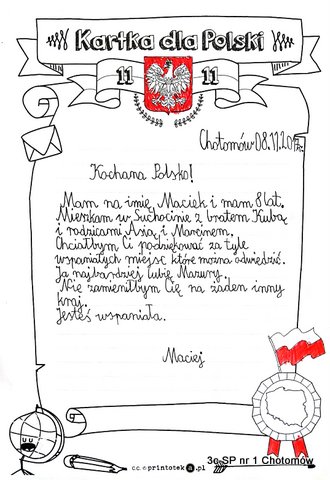 Kartka dla Polski
11 11
Chotomów 08.11.2017r.
Kochana Polsko!
Mam na imię Maciek i mam 8 lat.
Mieszkam w Suchocinie z bratem Kubą
i rodzicami Asią i Marcinem.
Chciałbym Ci podziękować za tyle
wspaniałych miejsc które można odwiedzić.
Ja najbardziej lubię Mazury.
Nie zamieniłbym Cię na żaden inny
kraj.
Jesteś wspaniała.
Maciej
3c SP nr 1 Chotomów
printoteka.pl